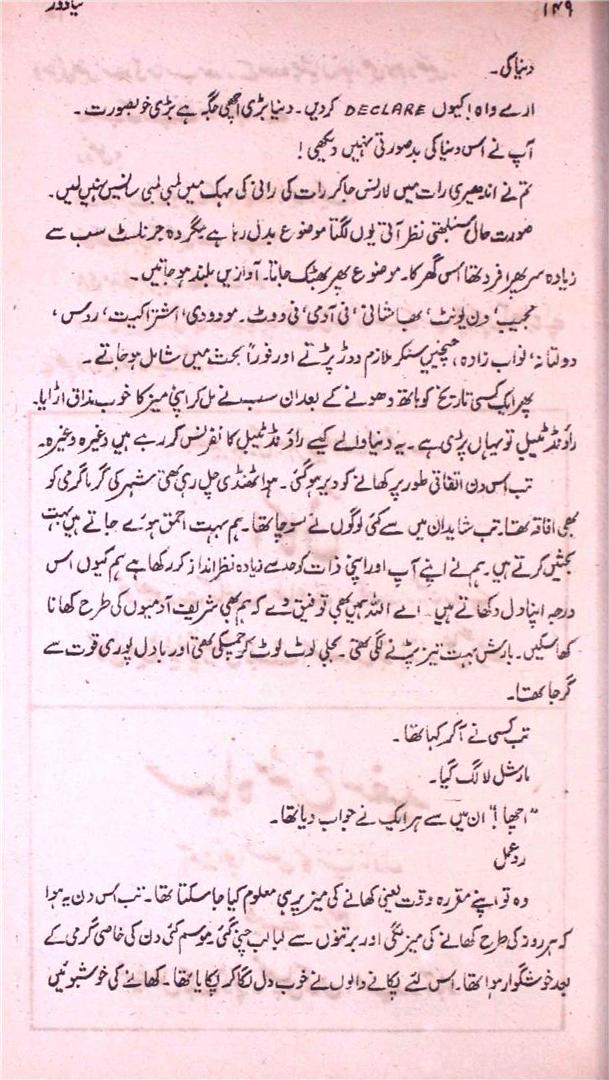 ۱۴۹ نیا دور
دنیا کی۔
ارے واہ! کیوں DECLARE کر دیں۔ دنیا بڑی اچھی جگہ ہے بڑی خوبصورت۔
آپ نے اس دنیا کی بدصورتی نہیں دیکھی!
تم نے اندھیری رات میں لارنس جا کر رات کی رانی کی مہک میں لمبی لمبی سانسیں نہیں لیں۔
صورت حال سنبھلتی نظر آتی یوں لگتا موضوع بدل رہا ہے مگر وہ جرنلسٹ سب سے
زیادہ سر پھرا فرد تھا اس گھر کا۔ موضوع پھر بھٹک جاتا۔ آوازیں بلند ہو جاتیں۔
مجیب، ون یونٹ، بھاشانی، نی آدمی، نی ووٹ۔ مودودی، اشتراکیت، روس،
دولتانہ، نواب زادہ، چیخیں سنکر ملازم دوڑ پڑتے اور فوراً بحث میں شامل ہو جاتے۔
پھر ایک کسی تاریخ کو ہاتھ دھونے کے بعد ان سب نے مل کر اپنی میز کا خوب مذاق اڑایا۔
راؤنڈ ٹیبل تو یہاں پڑی ہے۔ یہ دنیا والے کیسے راؤنڈ ٹیبل کانفرنس کر رہے ہیں وغیرہ وغیرہ۔
تب اس دن اتفاقی طور پر کھانے کو دیر ہو گئی۔ ہوا ٹھنڈی چل رہی تھی شہر کی گرما گرمی کو
بھی افاقہ تھا۔ تب شاید ان میں سے کئی لوگوں نے سوچا تھا۔ ہم بہت احمق ہوئے جاتے ہیں بہت
بحثیں کرتے ہیں۔ ہم نے اپنے آپ اور اپنی ذات کو حد سے زیادہ نظر انداز کر رکھا ہے ہم کیوں اس
درجہ اپنا دل دکھاتے ہیں۔ اے اللہ ہمیں بھی توفیق دے کہ ہم بھی شریف آدمیوں کی طرح کھانا
کھا سکیں۔ بارش بہت تیز پڑنے لگی تھی۔ بجلی لوٹ لوٹ کر چمکی تھی اور بادل پوری قوت سے
گرجا تھا۔
تب کسی نے آ کر کہا تھا۔
مارشل لا لگ گیا۔
"اچھا!" ان میں سے ہر ایک نے جواب دیا تھا۔
ردعمل
وہ تو اپنے مقررہ وقت یعنی کھانے کی میز پر ہی معلوم کیا جا سکتا تھا۔ تب اس دن یہ ہوا
کہ ہر روز کی طرح کھانے کی میز لگی اور برتنوں سے لبالب چنی گئی۔ موسم کئی دن کی خاصی گرمی کے
بعد خوشگوار ہوا تھا۔ اس لئے پکانے والوں نے خوب دل لگا کر پکایا تھا۔ کھانے کی خوشبوئیں